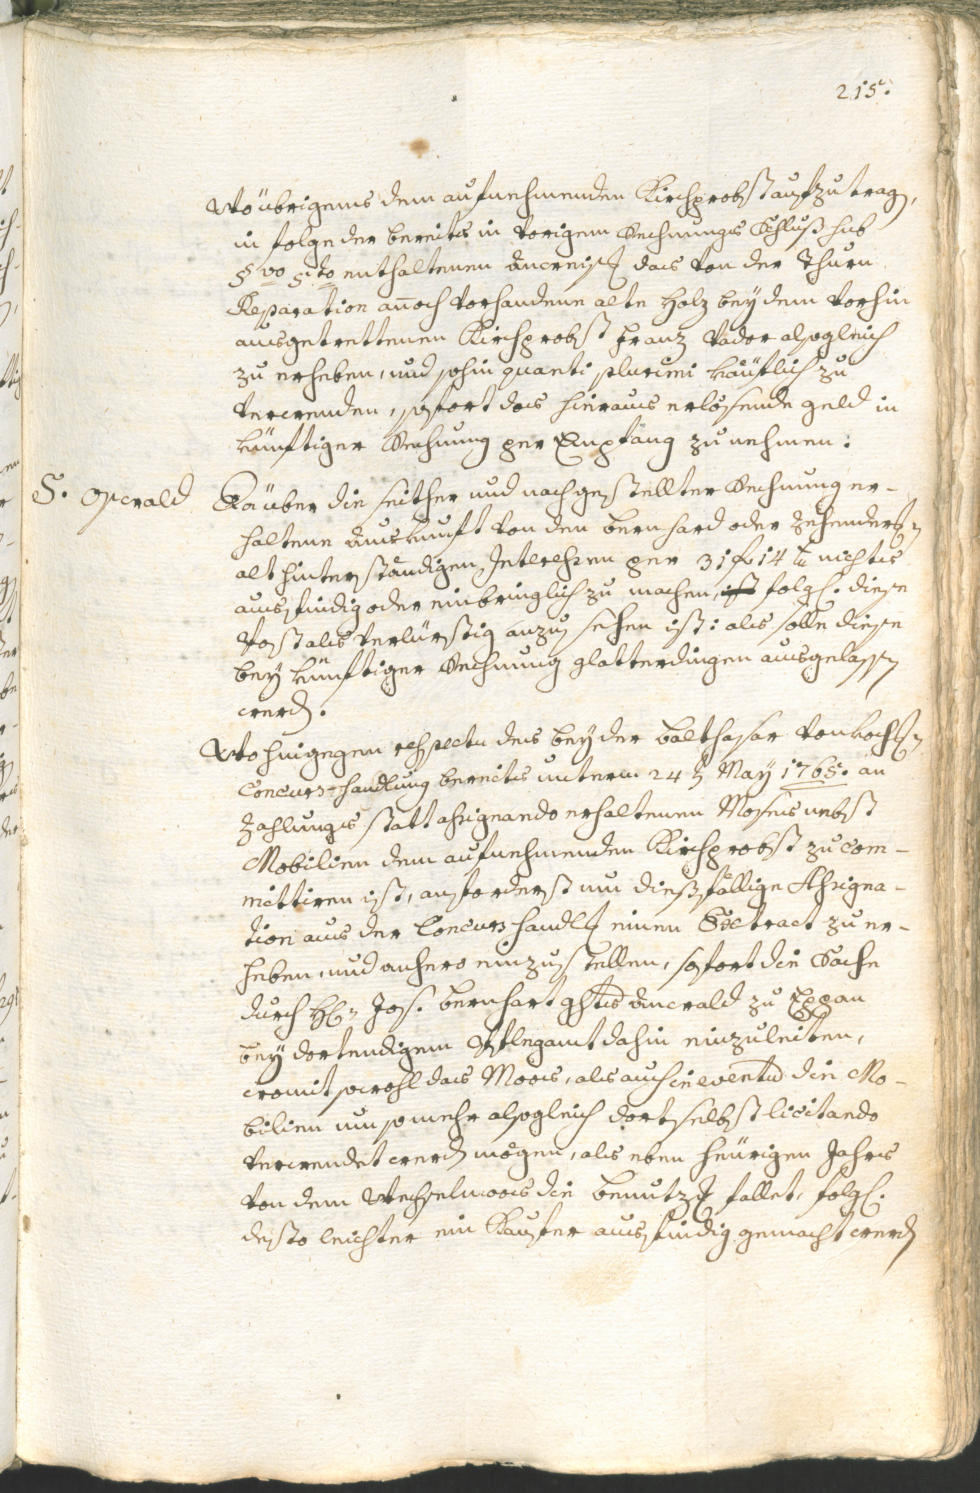 215.
Wo übrigens dem aufnehmenden Kirchprobst aufzutragen,
in folge der bereits in vorigem Rechnungs Schluß sub
§vo 5to enthaltenen das von der Thurn
Reparation annoch vorhandene alte Holz bey dem vorhin
ausgetrettenen Kirchprobst Franz Vador alsogleich
zu erheben, und sohin quanti plurimi käuflich zu
verwenden, sofort das hieraus erlösende geld in
künftiger Rechnung per Empfang zu nehmen.
S. Oswald
Da über die seither und nach gestellter Rechnung er-
haltene Auskunft von den Bernhard oder Zehenderisch
alt hinterständigen Interessen per 31 f 14 kr nichts
ausfindig oder einbringlich zu machen, folgl. diese
Post als verlürstig anzusehen ist: als solle diese
bey künftiger Rechnung glatterdingen ausgelassen
werden.
Wo hingegen respectu des bey der Balthasar
Concurs-handlung bereits unterm 24ten May 1765. an
Zahlungs statt assignando erhaltenen Mooses nebst
Mobilien dem aufnehmenden Kirchprobst zu com-
mittiren ist, anforderst um diesfällige Assigna-
tion aus der Concurs handlung einen Extract zu er-
heben, und anhero einzustellen, sofort die Sache
durch Hr. Jos. Bernhart Anwald zu Eppan
bey dortendigem Pfleg amt dahin einzuleiten,
womit sowohl das Moos, als auch in eventum die Mo-
bilien um so mehr alsogleich dortselbst licitando
verwendet werden mögen, als eben heurigen Jahrs
von dem Wechselmoos die Benutzung fallet, folgl.
desto leichter ein Kaufer ausfindig gemacht werden